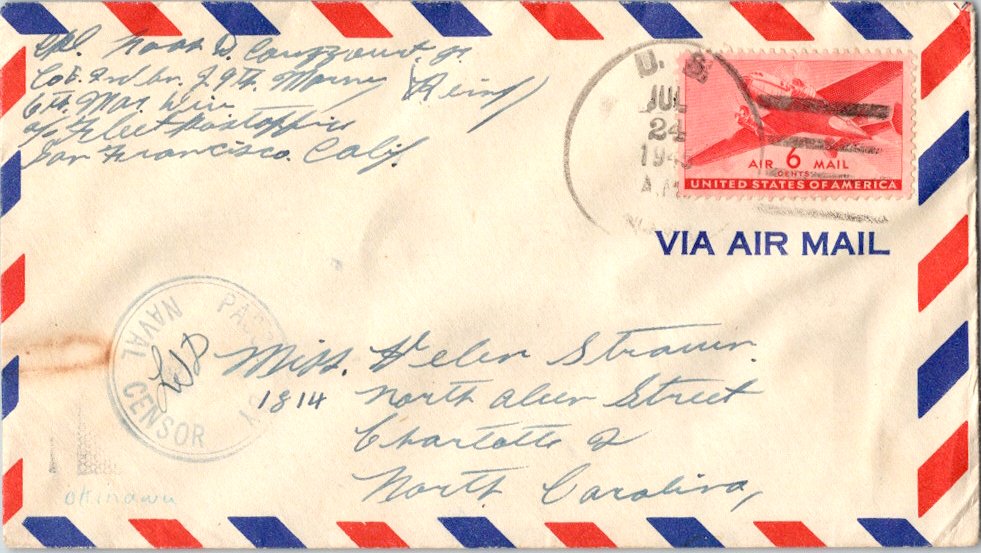 Cpl. Ross D.
Co E. 2nd bn. 29th. Marines (Reinf)
6th Mar. Div
c/o Fleet Postoffice
San Francisco. Calif.
U. S.
JUL
24
A.M.
AIR 6 MAIL
CENTS
UNITED STATES OF AMERICA
VIA AIR MAIL
NAVAL CENSOR
Miss. Helen
1814 North Street
Charlotte 2
North Carolina,
okinawa